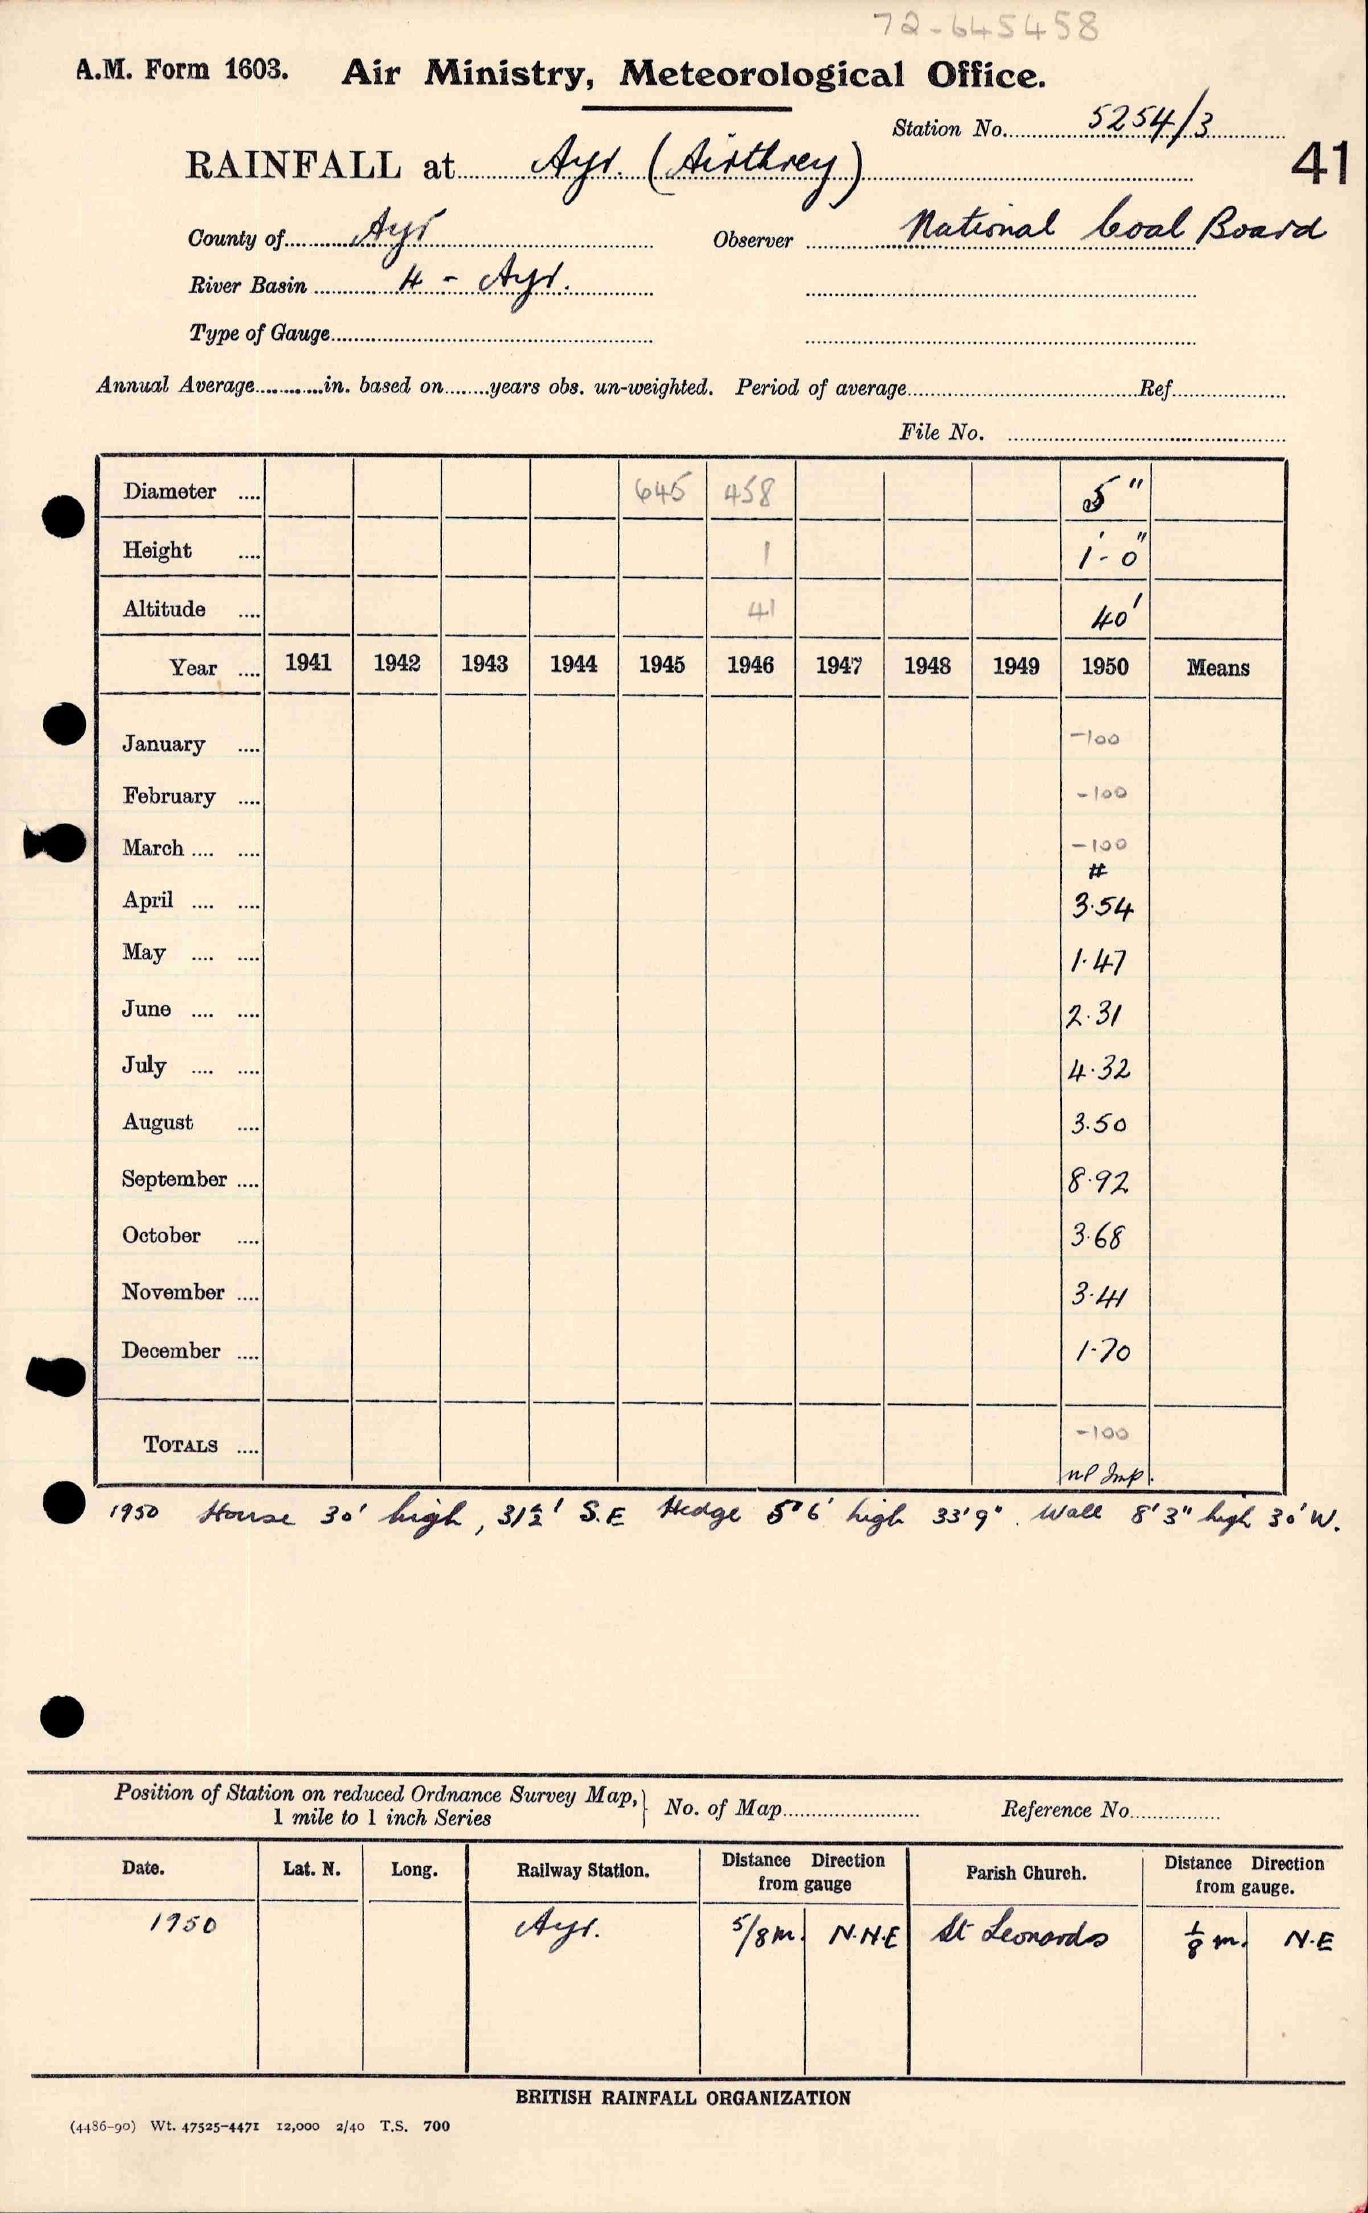 72-645458
A.M. Form 1603. Air Ministry, Meteorological Office.
Station No. 5254/3
41
RAINFALL at Ayr. (Airthrey)
County of Ayr Observer National Coal Board
River Basin 4 - Ayr.
Type of Gauge
Annual Average in. based on years obs. un-weighted. Period of average Ref.
File No.
Diameter .... 645 458 5"
Height .... 1 1'-0"
Altitude .... 41 40'
Year .... 1941 1942 1943 1944 1945 1946 1947 1948 1949 1950 Means
January .... -100
February .... -100
March .... .... -100
#
April .... .... 3.54
May .... .... 1.47
June .... .... 2.31
July .... .... 4.32
August .... 3.50
September .... 8.92
October .... 3.68
November .... 3.41
December .... 1.70
TOTALS .... -100
Imp.
1950 House 30' high, S.E Hedge 5'6' high 33'9". Wall 8'3" high 30' W.
Position of Station on reduced Ordnance Survey Map, 1 mile to 1 inch Series } No. of Map Reference No.
Date. Lat. N. Long. Railway Station. Distance from gauge Direction Parish Church. Distance from gauge. Direction
1950 Ayr. 5/8 m. N.N.E St Leonards 1/8 m. N.E
BRITISH RAINFALL ORGANIZATION
(4486-90) Wt. 47525-4471 12,000 2/40 T.S. 700